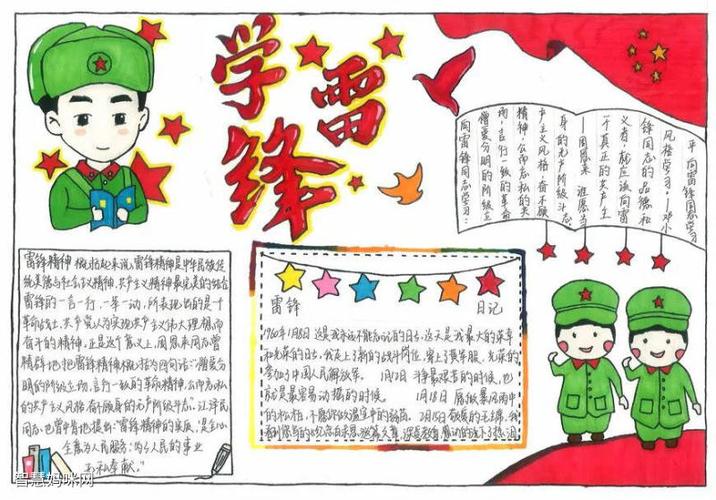 学雷锋
向雷锋同志学习：
憎爱分明的阶级立
场，言行一致的革命
精神，公而忘私的共
产主义风格，奋不顾
身的无产阶级斗志。
——周恩来 谁愿当
个真正的共产主
义者，就应该向雷
锋同志的品德和
风格学习。——邓小
平 向雷锋同志学习
雷锋精神概括起来说，雷锋精神是中华民族传
统美德与社会主义精神，共产主义精神最完美的结合
雷锋的一言一行，一举一动，所表现出的是一个
革命战士，共产党人为实现共产主义伟大理想而
奋斗的精神，正是这个意义上，周恩来同志曾
精辟地把雷锋精神概括为四句话：“憎爱分
明的阶级立场，言行一致的革命精神，公而忘私
的共产主义风格，奋不顾身的无产阶级斗志。”江泽民
同志也曾中肯地提出：“雷锋精神的实质，是全心
全意为人民服务，为了人民的事业
无私奉献。”
雷锋 日记
1960年1月8日 这是我永远不能忘记的日子，这天是我最大的荣幸
和光荣的日子，我走上了新的战斗岗位，穿上了黄军服，光荣的
参加了中国人民解放军。 1月12日 斗争最艰苦的时候，也
就是最容易动摇的时候。 1月18日 愿做暴风雨中
的松柏，不愿做温室中的弱苗。 2月15日 敬爱的毛主席，我
智慧妈咪网